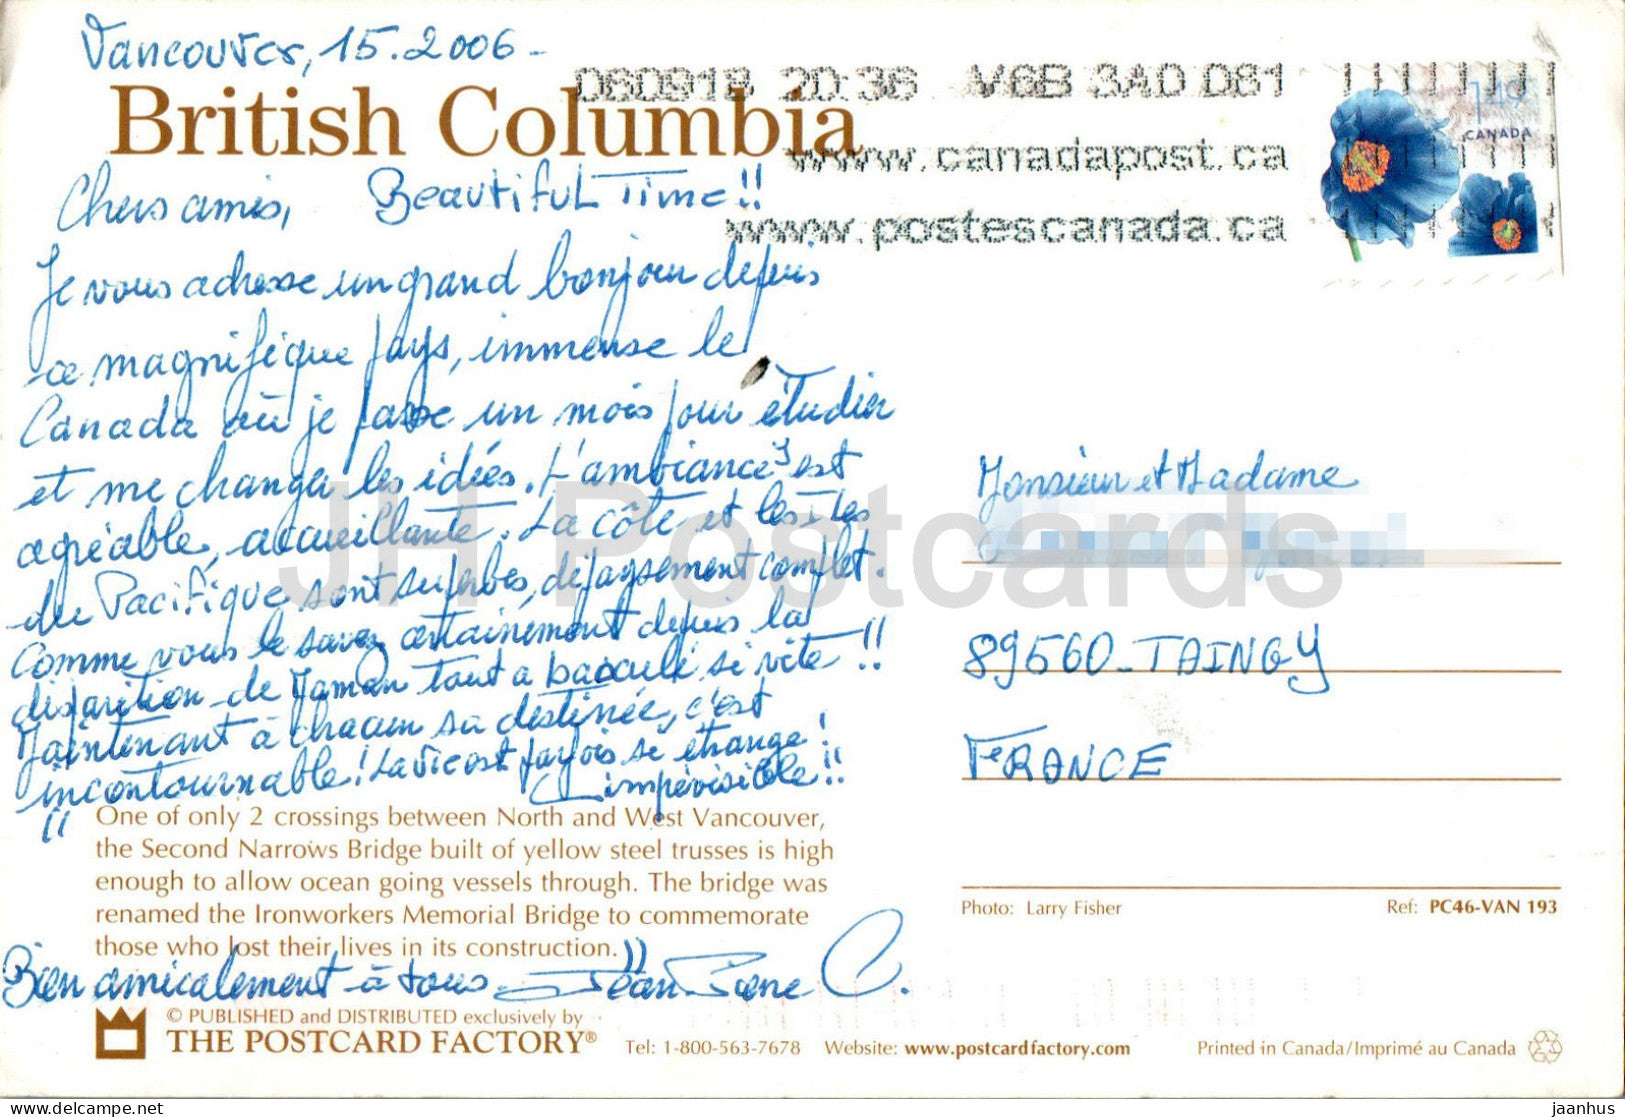 Vancouver, 15.2006 -
British Columbia
060918 20:36 V6B 3A0 D61
www.canadapost.ca
www.postescanada.ca
149
CANADA
Chers amis, Beautiful Time!!
Je vous adresse un grand bonjour depuis
ce magnifique pays, immense le
Canada où je passe un mois pour étudier
et me changer les idées. L'ambiance est
agréable, accueillante. La côte et les Iles
du Pacifique sont superbes, dépaysement complet.
Comme vous le savez certainement depuis la
disparition de Maman tout a basculé si vite!!
Maintenant à chacun sa destinée, c'est
incontournable! La vie est parfois si étrange!
imprévisible!!
"One of only 2 crossings between North and West Vancouver,
the Second Narrows Bridge built of yellow steel trusses is high
enough to allow ocean going vessels through. The bridge was
renamed the Ironworkers Memorial Bridge to commemorate
those who lost their lives in its construction."
Bien amicalement à tous. Jean-Pierre C.
Monsieur et Madame
89560 - TAINGY
FRANCE
Photo: Larry Fisher Ref: PC46-VAN 193
© PUBLISHED and DISTRIBUTED exclusively by
THE POSTCARD FACTORY® Tel: 1-800-563-7678 Website: www.postcardfactory.com Printed in Canada/Imprimé au Canada
JH Postcards
delcampe.net
jaanhus